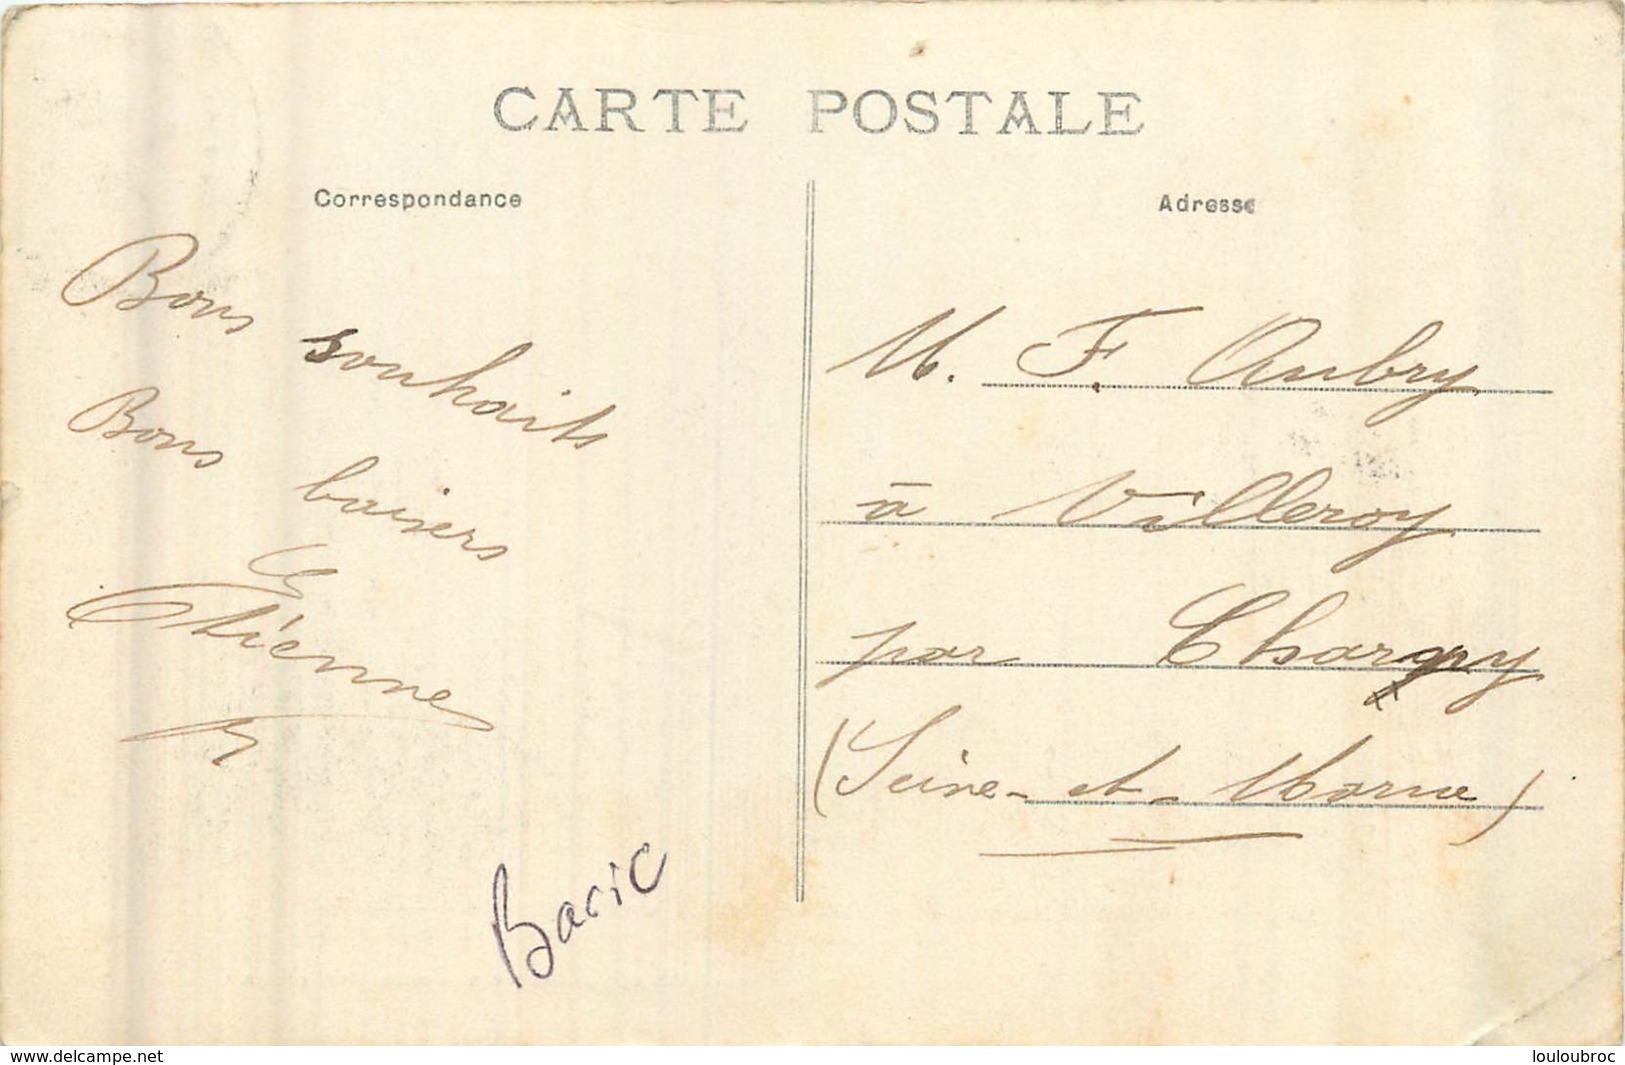 CARTE POSTALE
Correspondance
Bons souhaits
Bons baisers
Etienne
Baric
Adresse
M. F. Aubry
à Villeroy
par Charny
(Seine-et-Marne)
www.delcampe.net
louloubroc